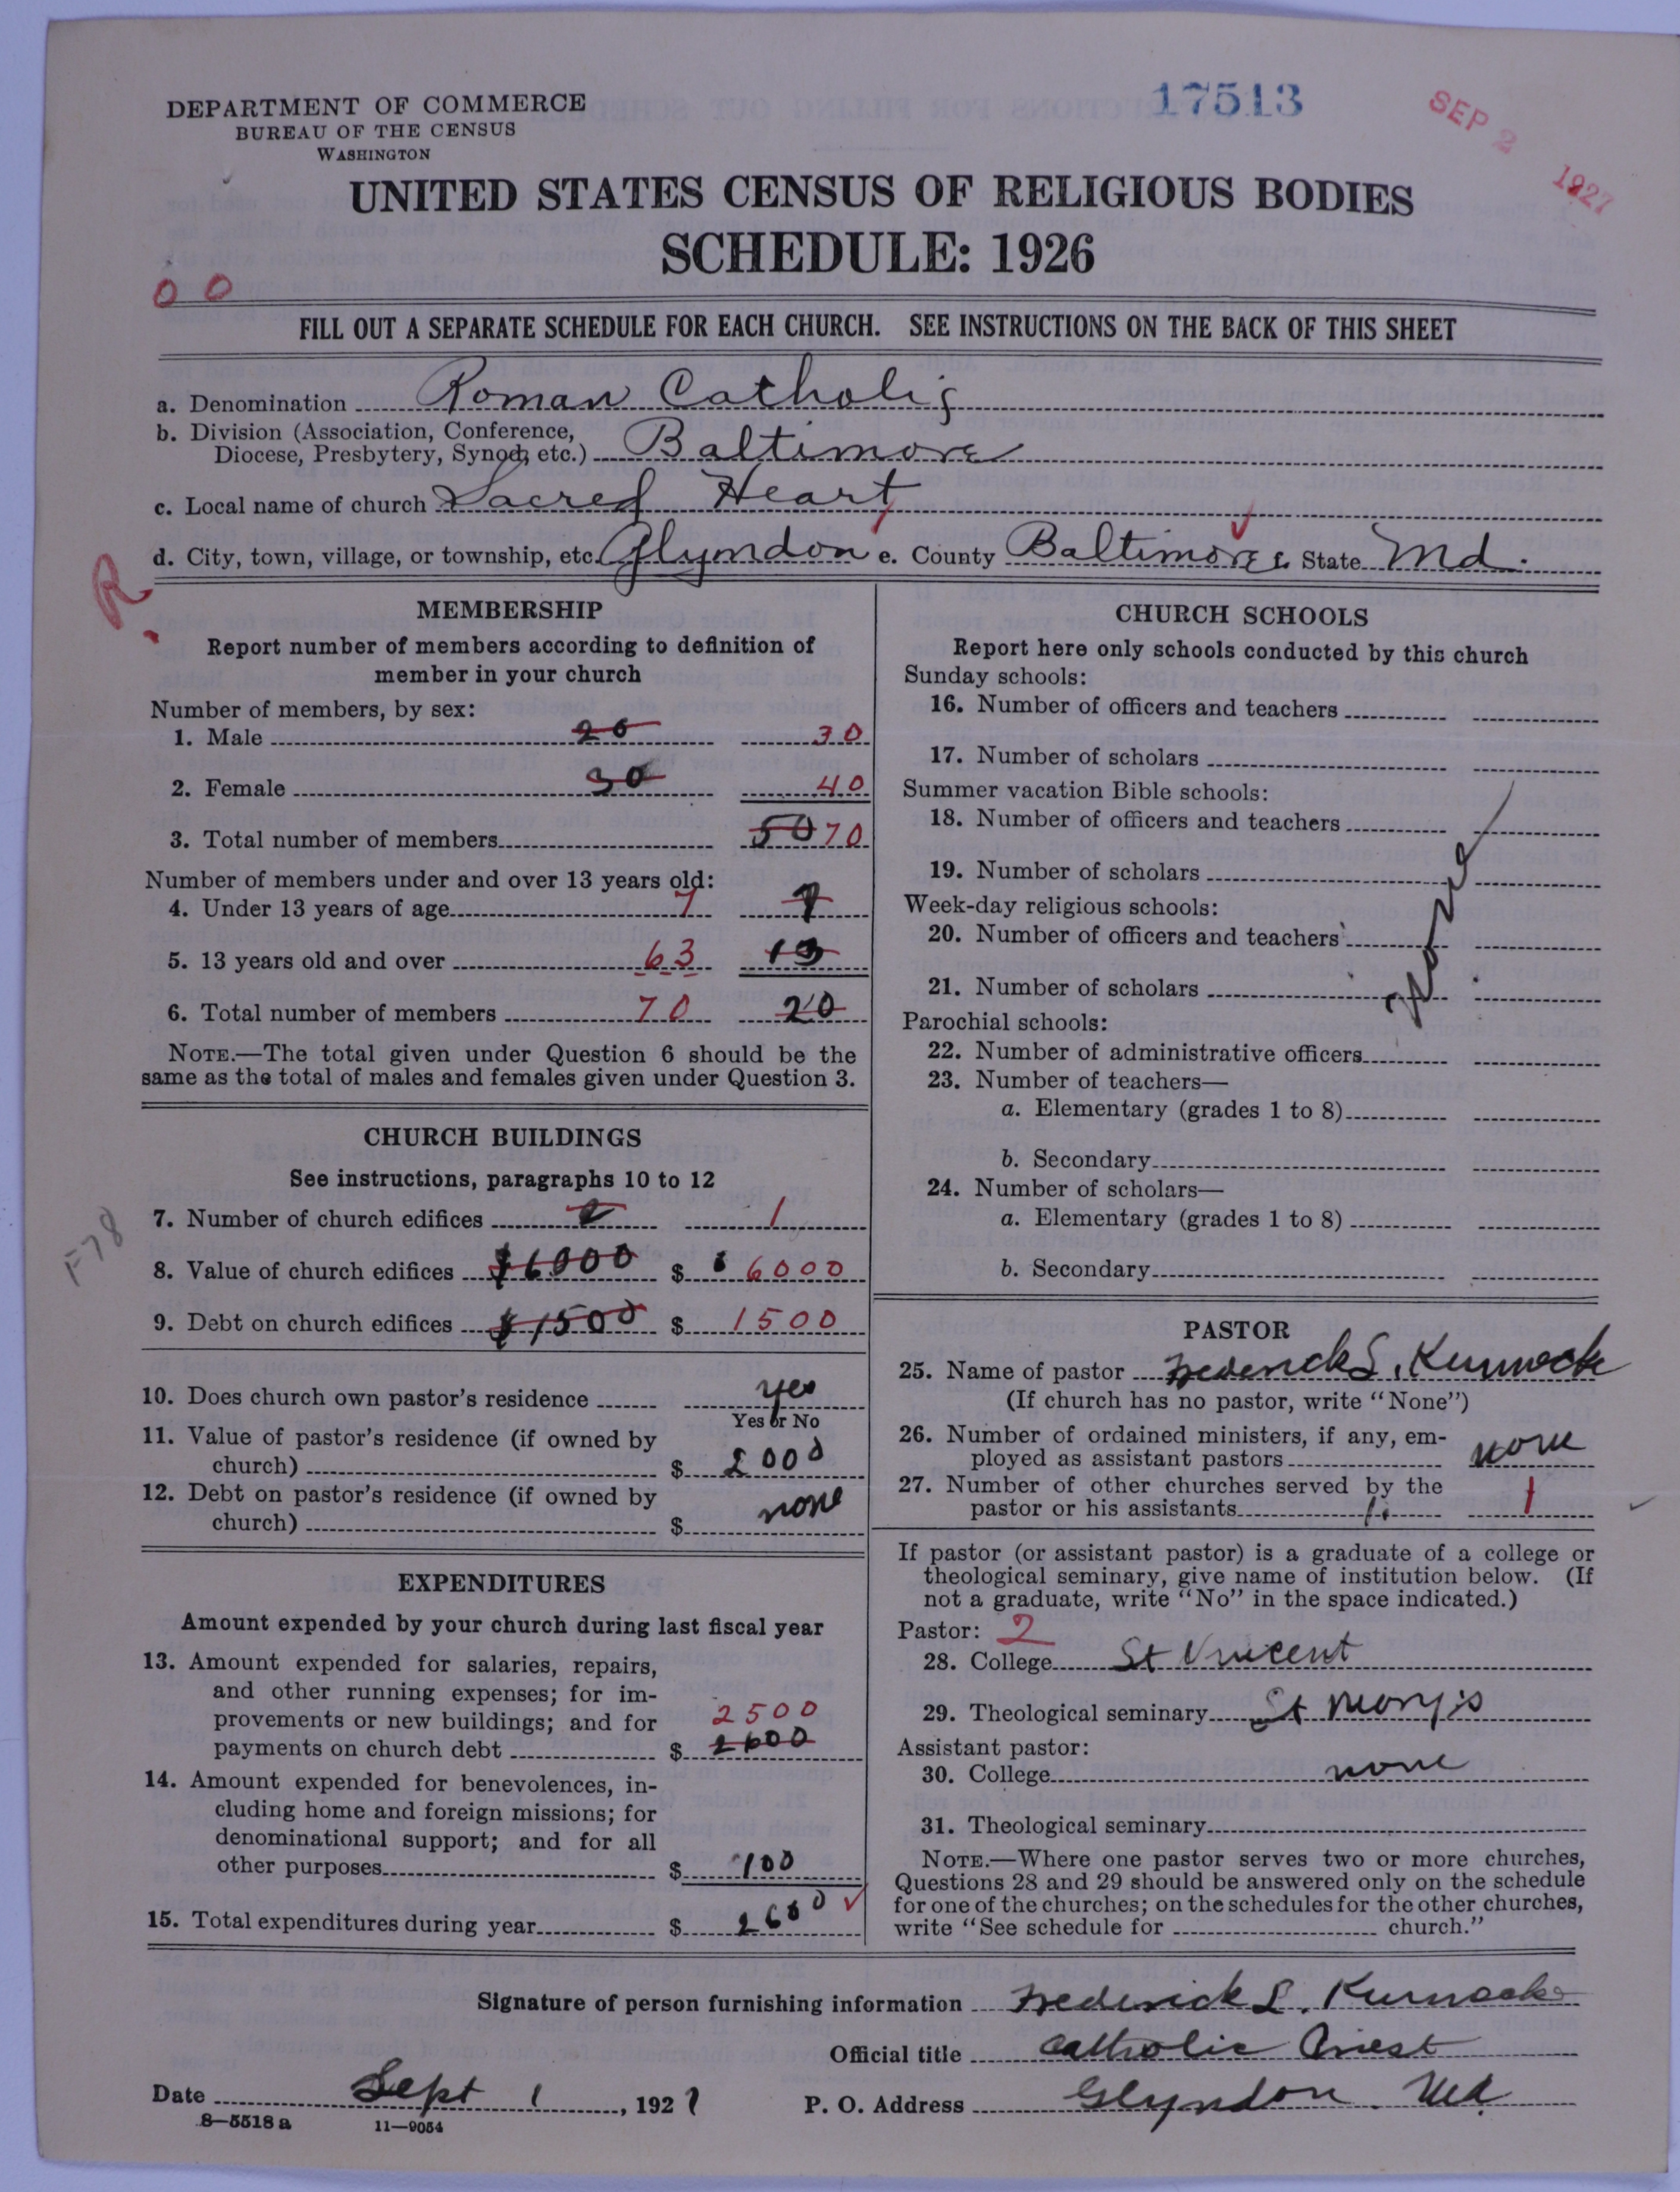 17513
SEP 2 1927
DEPARTMENT OF COMMERCE
BUREAU OF THE CENSUS
WASHINGTON
UNITED STATES CENSUS OF RELIGIOUS BODIES
SCHEDULE: 1926
0 0
FILL OUT A SEPARATE SCHEDULE FOR EACH CHURCH. SEE INSTRUCTIONS ON THE BACK OF THIS SHEET
a. Denomination Roman Catholic
b. Division (Association, Conference,
Diocese, Presbytery, Synod, etc.) Baltimore
c. Local name of church Sacred Heart
d. City, town, village, or township, etc. Glyndon e. County Baltimore f. State Md.
R
MEMBERSHIP
Report number of members according to definition of
member in your church
Number of members, by sex:
1. Male 20 30
2. Female 30 40
3. Total number of members 50 70
Number of members under and over 13 years old:
4. Under 13 years of age 7 7
5. 13 years old and over 63 13
6. Total number of members 70 20
NOTE.—The total given under Question 6 should be the
same as the total of males and females given under Question 3.
CHURCH BUILDINGS
See instructions, paragraphs 10 to 12
7. Number of church edifices 1
F78
8. Value of church edifices $6000 $ 6000
9. Debt on church edifices $1500 $ 1500
10. Does church own pastor's residence yes
Yes or No
11. Value of pastor's residence (if owned by
church) $ 2000
12. Debt on pastor's residence (if owned by
church) $ none
EXPENDITURES
Amount expended by your church during last fiscal year
13. Amount expended for salaries, repairs,
and other running expenses; for im-
provements or new buildings; and for 2500
payments on church debt $ 2600
14. Amount expended for benevolences, in-
cluding home and foreign missions; for
denominational support; and for all
other purposes $ 100
15. Total expenditures during year $ 2600
CHURCH SCHOOLS
Report here only schools conducted by this church
Sunday schools:
16. Number of officers and teachers
17. Number of scholars
Summer vacation Bible schools:
18. Number of officers and teachers
19. Number of scholars
Week-day religious schools:
20. Number of officers and teachers
None
21. Number of scholars
Parochial schools:
22. Number of administrative officers
23. Number of teachers—
a. Elementary (grades 1 to 8)
b. Secondary
24. Number of scholars—
a. Elementary (grades 1 to 8)
b. Secondary
PASTOR
25. Name of pastor Frederick L.
(If church has no pastor, write "None")
26. Number of ordained ministers, if any, em-
ployed as assistant pastors none
27. Number of other churches served by the
pastor or his assistants 1. 1
If pastor (or assistant pastor) is a graduate of a college or
theological seminary, give name of institution below. (If
not a graduate, write "No" in the space indicated.)
Pastor: 2
28. College St Vincent
29. Theological seminary St Mary's
Assistant pastor:
30. College none
31. Theological seminary
NOTE.—Where one pastor serves two or more churches,
Questions 28 and 29 should be answered only on the schedule
for one of the churches; on the schedules for the other churches,
write "See schedule for church."
Signature of person furnishing information Frederick L.
Official title Catholic Priest
Date Sept 1, 1927 P. O. Address Glyndon Md.
8—5518 a 11—9054